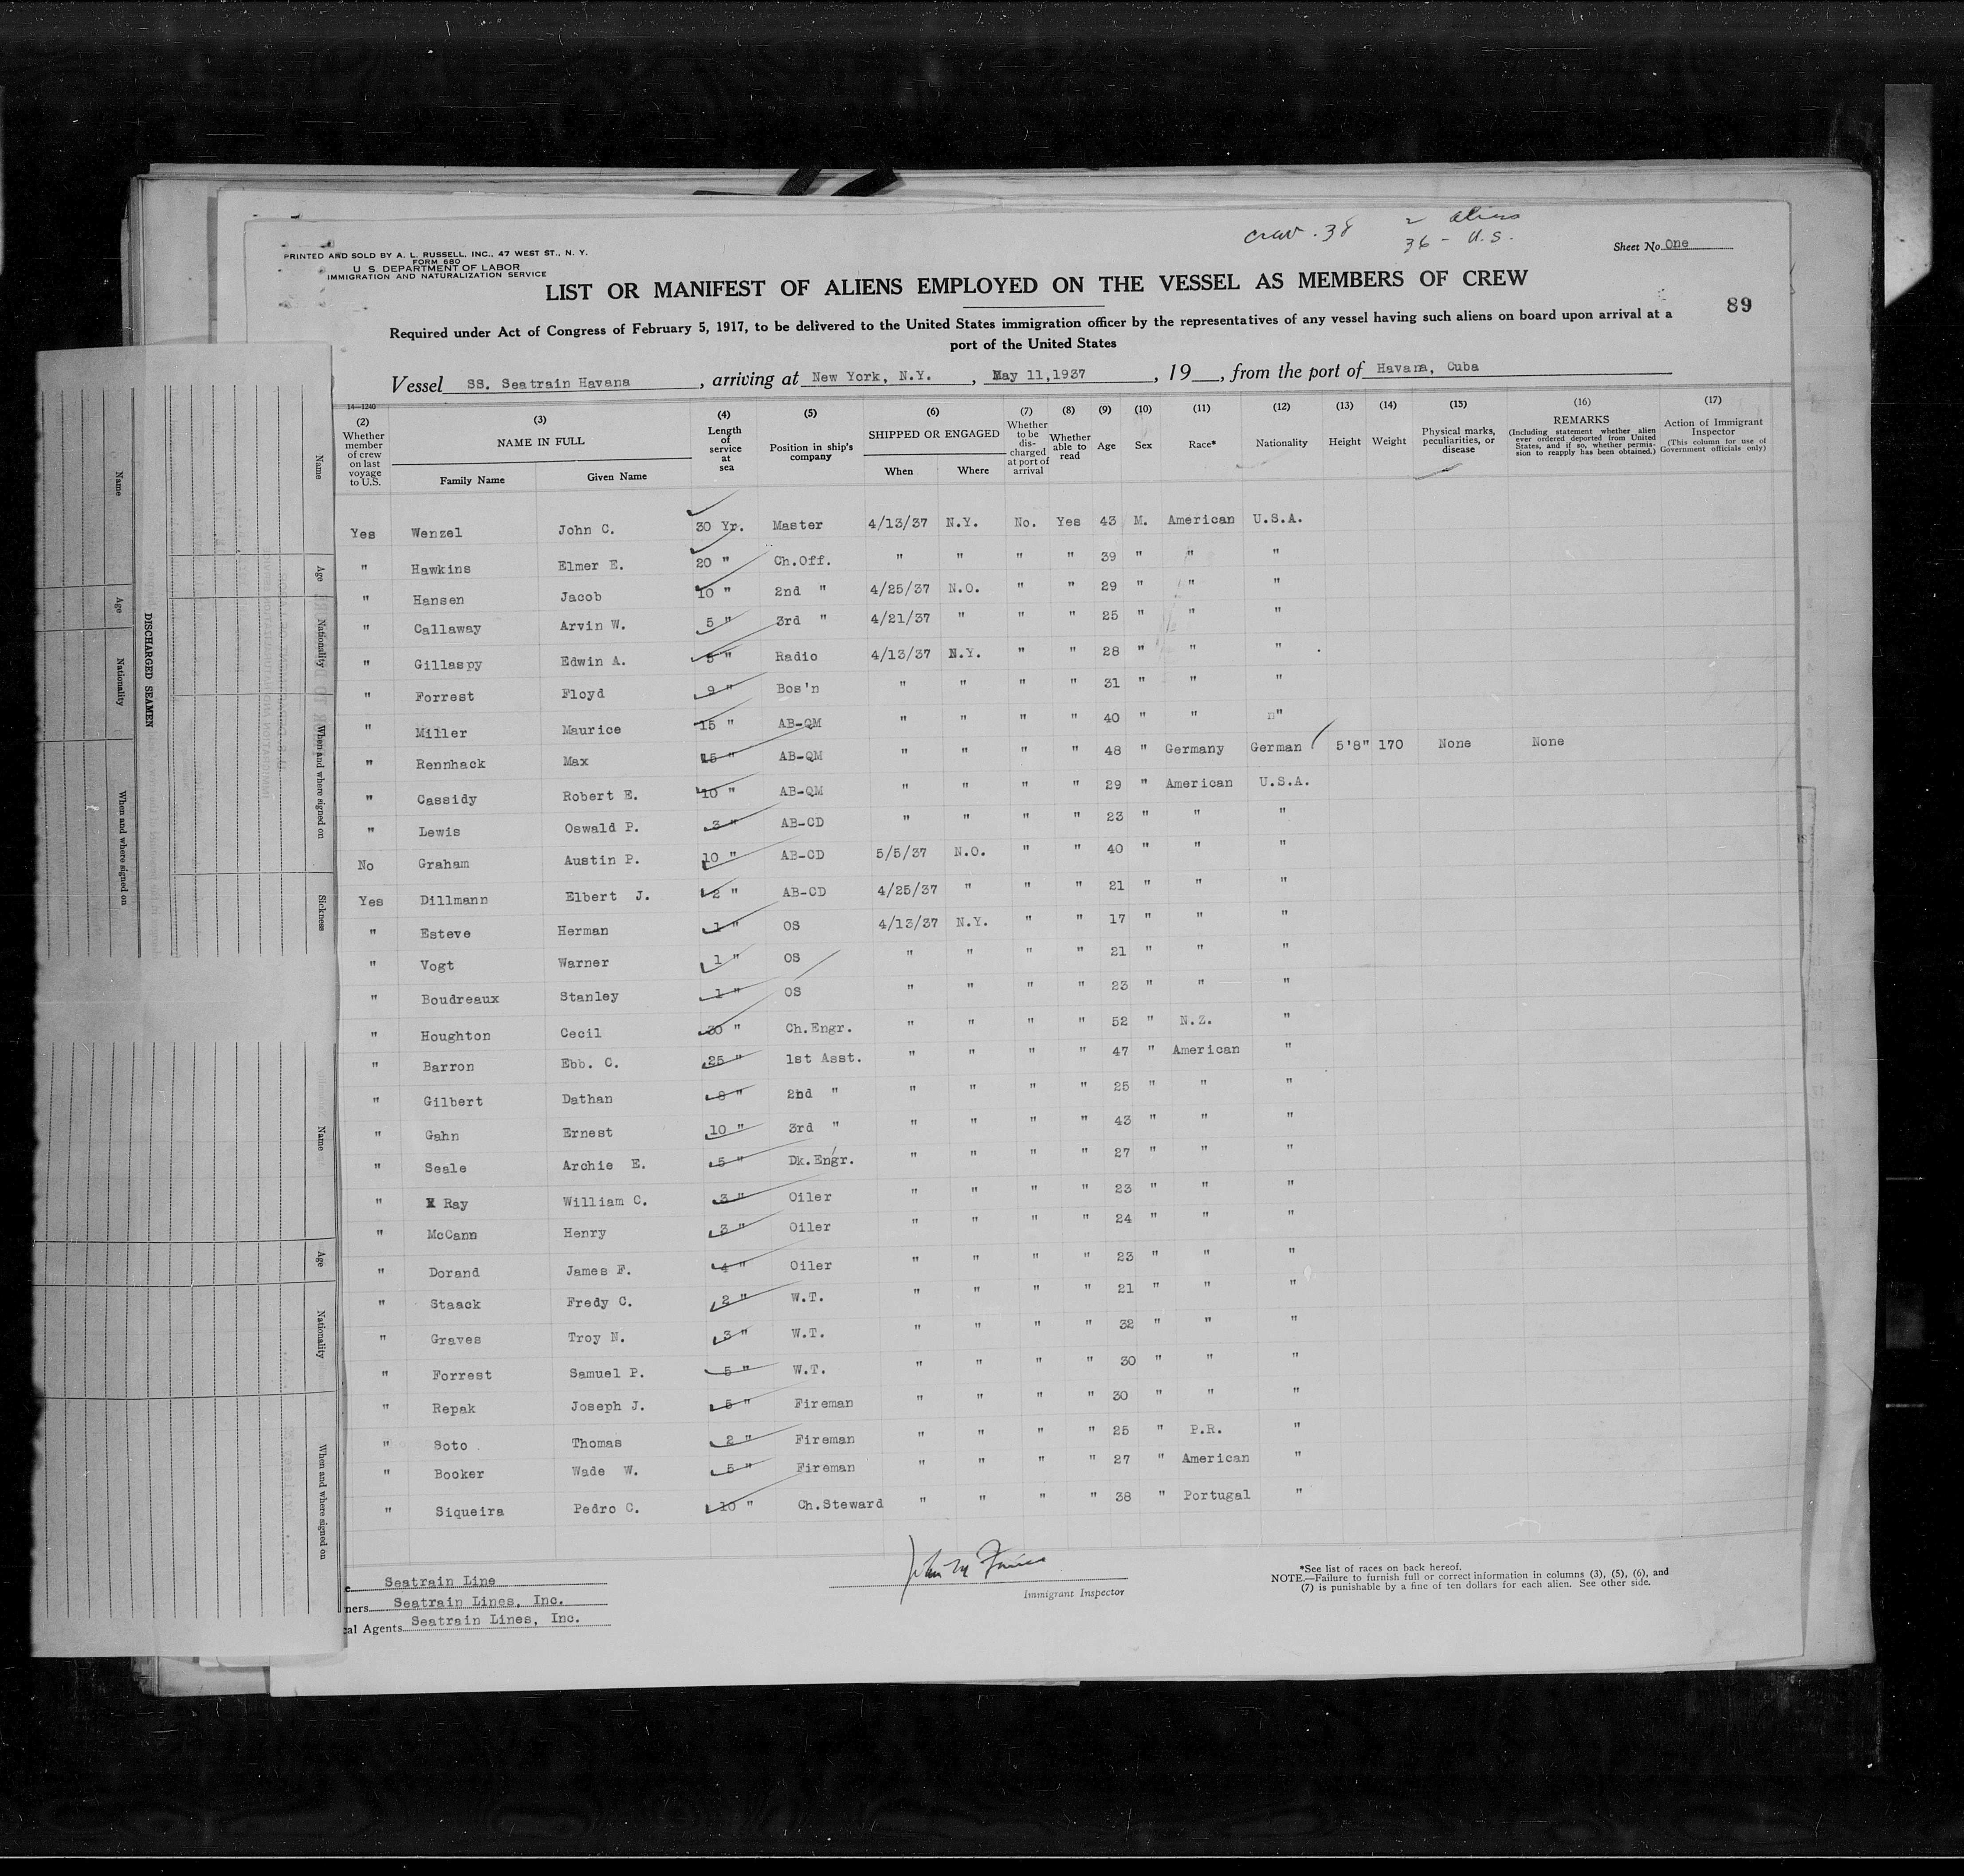 crew . 38 2 aliens
36 - U.S.
Sheet No. One
PRINTED AND SOLD BY A. L. RUSSELL, INC., 47 WEST ST., N. Y.
FORM 680
U. S. DEPARTMENT OF LABOR
IMMIGRATION AND NATURALIZATION SERVICE
LIST OR MANIFEST OF ALIENS EMPLOYED ON THE VESSEL AS MEMBERS OF CREW
89
Required under Act of Congress of February 5, 1917, to be delivered to the United States immigration officer by the representatives of any vessel having such aliens on board upon arrival at a
port of the United States
Vessel SS. Seatrain Havana, arriving at New York, N.Y., May 11,1937, 19__, from the port of Havana, Cuba
14—1240
(2) (3) (4) (5) (6) (7) (8) (9) (10) (11) (12) (13) (14) (15) (16) (17)
Whether member of crew on last voyage to U.S. NAME IN FULL Family Name Given Name Length of service at sea Position in ship's company SHIPPED OR ENGAGED When Where Whether to be discharged at port of arrival Whether able to read Age Sex Race* Nationality Height Weight Physical marks, peculiarities, or disease REMARKS (Including statement whether alien ever ordered deported from United States, and if so, whether permission to reapply has been obtained.) Action of Immigrant Inspector (This column for use of Government officials only)
Yes Wenzel John C. 30 Yr. Master 4/13/37 N.Y. No. Yes 43 M. American U.S.A.
" Hawkins Elmer E. 20 " Ch.Off. " " " " 39 " " "
" Hansen Jacob 10 " 2nd " 4/25/37 N.O. " " 29 " " "
" Callaway Arvin W. 5 " 3rd " 4/21/37 " " " 25 " " "
" Gillaspy Edwin A. 5 " Radio 4/13/37 N.Y. " " 28 " " "
" Forrest Floyd 9 " Bos'n " " " " 31 " " "
" Miller Maurice 15 " AB-QM " " " " 40 " " "
" Rennhack Max 15 " AB-QM " " " " 48 " Germany German 5'8" 170 None None
" Cassidy Robert E. 10 " AB-QM " " " " 29 " American U.S.A.
" Lewis Oswald P. 3 " AB-CD " " " " 23 " " "
No Graham Austin P. 10 " AB-CD 5/5/37 N.O. " " 40 " " "
Yes Dillmann Elbert J. 2 " AB-CD 4/25/37 " " " 21 " " "
" Esteve Herman 1 " OS 4/13/37 N.Y. " " 17 " " "
" Vogt Warner 1 " OS " " " " 21 " " "
" Boudreaux Stanley 1 " OS " " " " 23 " " "
" Houghton Cecil 30 " Ch.Engr. " " " " 52 " N.Z. "
" Barron Ebb. C. 25 " 1st Asst. " " " " 47 " American "
" Gilbert Dathan 8 " 2nd " " " " " 25 " " "
" Gahn Ernest 10 " 3rd " " " " " 43 " " "
" Seale Archie E. 5 " Dk.Engr. " " " " 27 " " "
" Ray William C. 3 " Oiler " " " " 23 " " "
" McCann Henry 3 " Oiler " " " " 24 " " "
" Dorand James F. 4 " Oiler " " " " 23 " " "
" Staack Fredy C. 2 " W.T. " " " " 21 " " "
" Graves Troy N. 3 " W.T. " " " " 32 " " "
" Forrest Samuel P. 5 " W.T. " " " " 30 " " "
" Repak Joseph J. 5 " Fireman " " " " 30 " " "
" Soto Thomas 2 " Fireman " " " " 25 " P.R. "
" Booker Wade W. 5 " Fireman " " " " 27 " American "
" Siqueira Pedro C. 10 " Ch.Steward " " " " 38 " Portugal "
Seatrain Line
ners Seatrain Lines, Inc.
cal Agents Seatrain Lines, Inc.
Immigrant Inspector
*See list of races on back hereof.
NOTE.—Failure to furnish full or correct information in columns (3), (5), (6), and
(7) is punishable by a fine of ten dollars for each alien. See other side.
DISCHARGED SEAMEN
Name Age Nationality When and where signed on
Name Age Nationality When and where signed on Sickness
Name Age Nationality When and where signed on